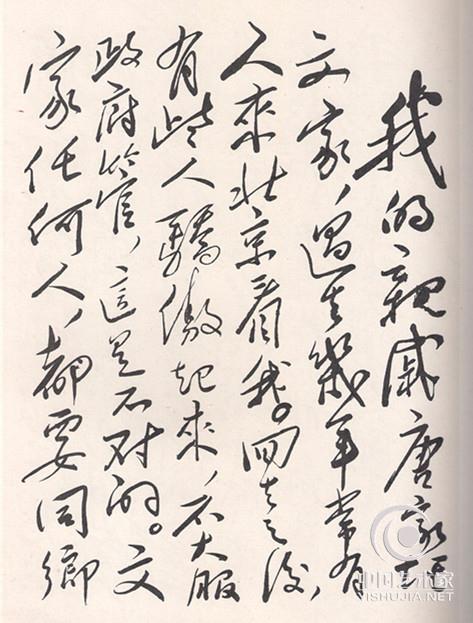 我的親戚唐家圫
文家，過去幾年常有
人來北京看我。回去之後，
有些人驕傲起來，不大服
政府管，這是不对的。文
家任何人，都要同鄉
中国艺术家
YISHUJIA.NET